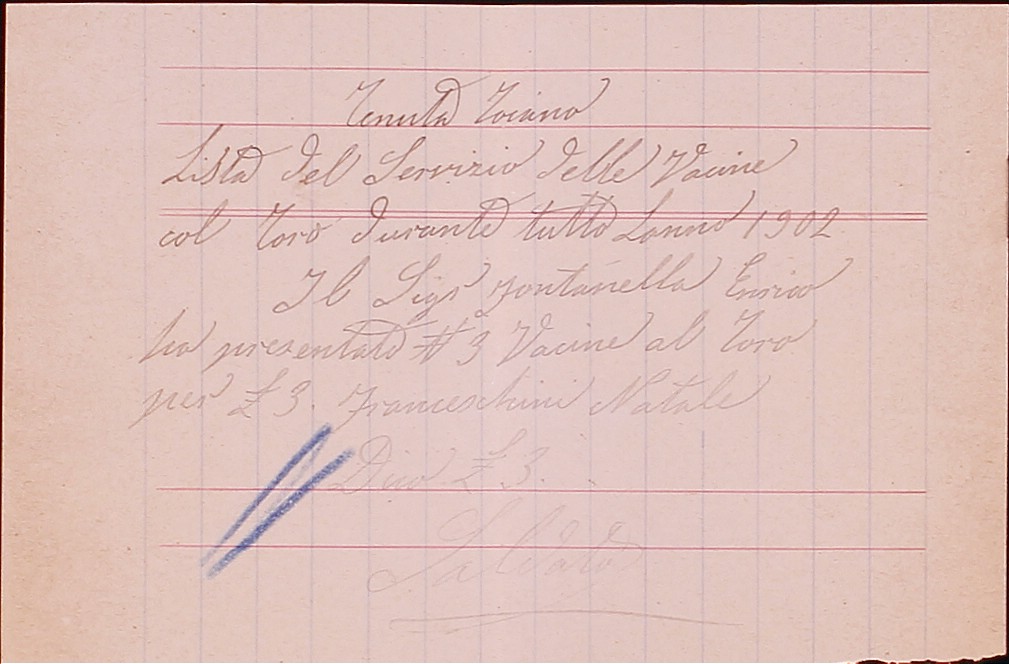 Tenuta Toiano
Lista del Servizio delle Vacine
col Toro durante tutto Lanno 1902
Il Sigr Fontanella Enrico
ha presentato # 3 Vacine al Toro
per £ 3. Franceschini Natale
Dico £ 3.
Saldato